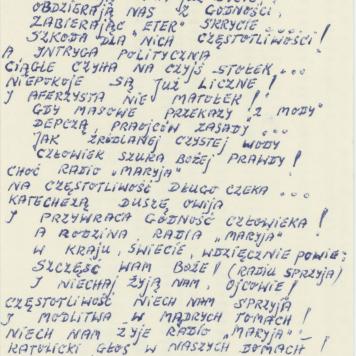 OBDZIERAJĄ NAS Z GODNOŚCI,
ZABIERAJĄC ETER" SKRYCIE...
SZKODA DLA "NICH CZĘSTOTLIWOŚCI!
A INTRYGA POLITYCZNA
CIĄGLE CZYHA NA CZYJŚ STOŁEK...
NIEPOKOJE SĄ JUŻ LICZNE!
I AFERZYSTA NIE MATOŁEK!
GDY MASOWE PRZEKAZY "Z MODY"
DEPCZĄ, PRAOJCÓW ZASADY...
JAK ŹRÓDLANEJ CZYSTEJ WODY
CZŁOWIEK SZUKA BOŻEJ PRAWDY!
CHOĆ RADIO „MARYJA"
NA CZĘSTOTLIWOŚĆ DŁUGO CZEKA...
KATECHEZĄ DUSZĘ OWIJA
I PRZYWRACA GODNOŚĆ CZŁOWIEKA!
A RODZINA RADIA „MARYJA"
W KRAJU, ŚWIECIE, WDZIĘCZNIE POWIE:
SZCZĘŚĆ WAM BOŻE! (RADIU SPRZYJA)
I NIECHAJ ŻYJĄ NAM, OJCOWIE!
CZĘSTOTLIWOŚĆ NIECH NAM SPRZYJA
I MODLITWA W MĄDRYCH TOMACH!
NIECH NAM ŻYJE RADIO „MARYJA"-
KATOLICKI GŁOS W NASZYCH DOMACH!